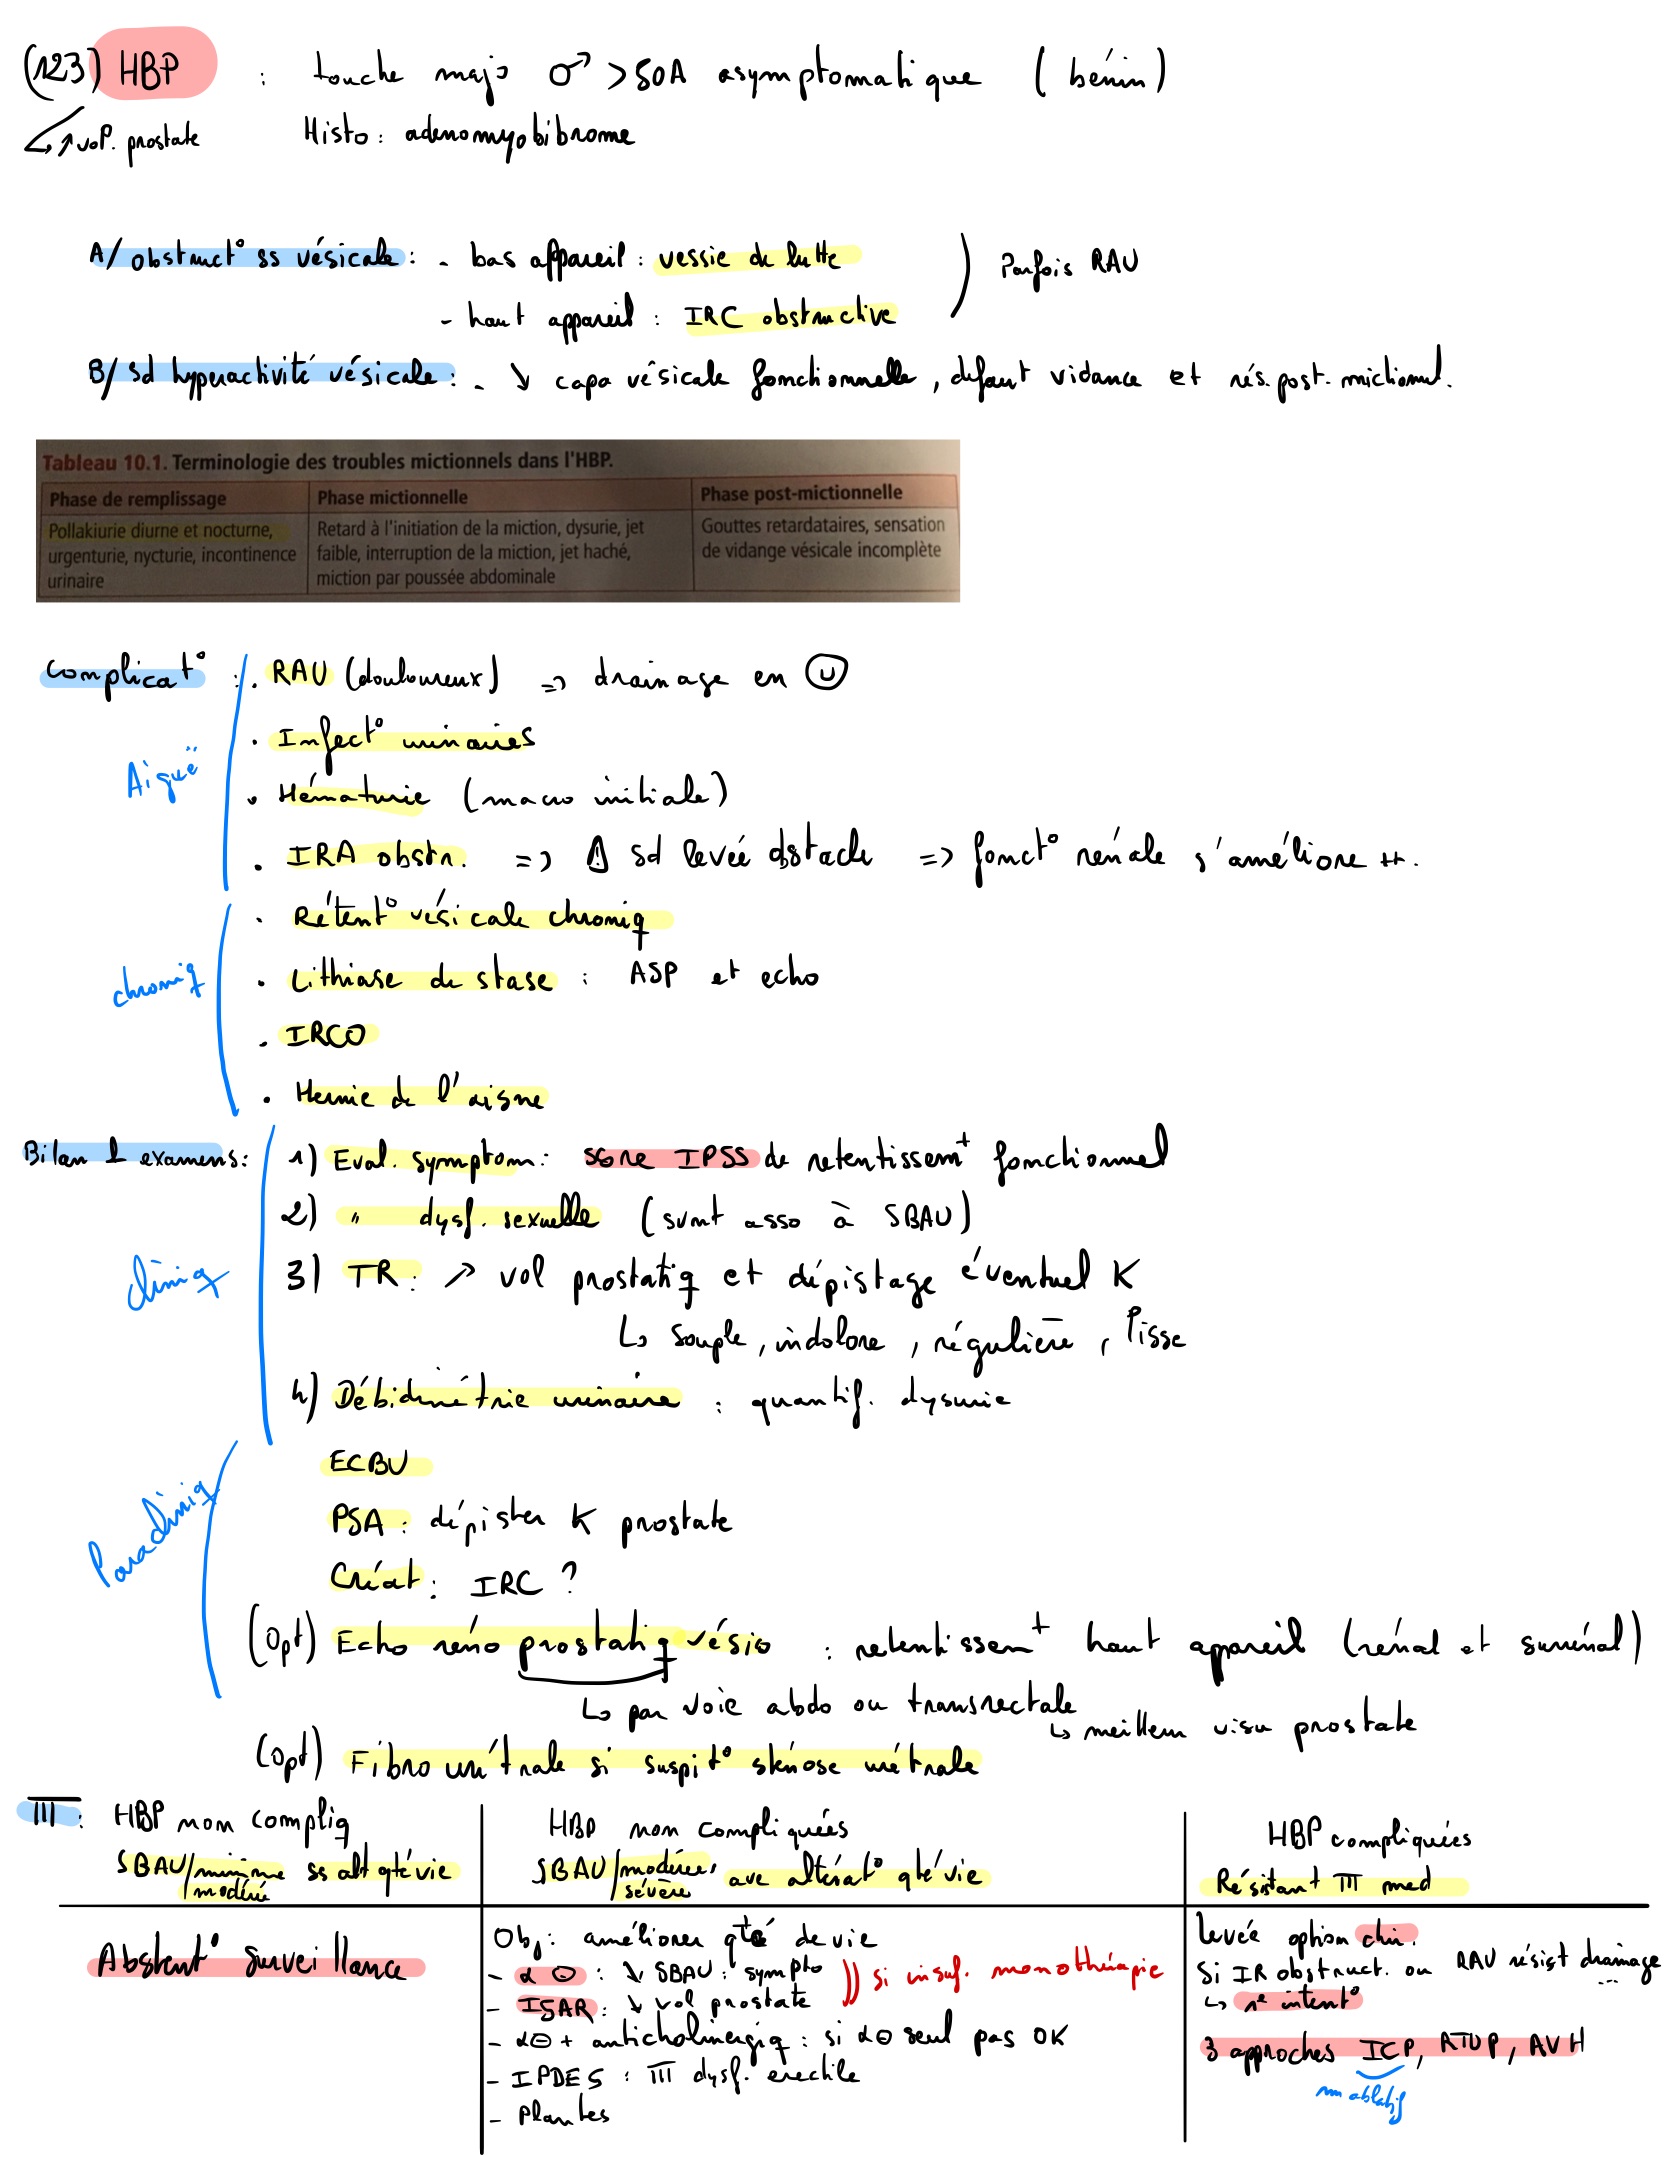 (123) HBP : touche majo ♂ > 50A asymptomatique (bénin)
↗ vol. prostate Histo : adenomyofibrome
A/ obstruct° ss vésicale : - bas appareil : vessie de lutte
- haut appareil : IRC obstructive
) Parfois RAU
B/ Sd hyperactivité vésicale : - ↘ capa vésicale fonctionnelle, défaut vidance et rés. post. mictionnel.
Tableau 10.1. Terminologie des troubles mictionnels dans l'HBP.
Phase de remplissage Phase mictionnelle Phase post-mictionnelle
Pollakiurie diurne et nocturne, Retard à l'initiation de la miction, dysurie, jet Gouttes retardataires, sensation
urgenturie, nycturie, incontinence faible, interruption de la miction, jet haché, de vidange vésicale incomplète
urinaire miction par poussée abdominale
Complicat° : . RAU (douloureux) => drainage en Ⓤ
. Infect° urinaires
Aiguë
. Hématurie (macro initiale)
. IRA obstr. => ⚠ sd levée obstacle => fonct° rénale s'améliore ++.
. Rétent° vésicale chroniq
chroniq
. Lithiase de stase : ASP et echo
. IRCO
. Hernie de l'aisne
Bilan & examens : 1) Eval. symptom : score IPSS de retentissemt fonctionnel
2) " dysf. sexuelle (svnt asso à SBAU)
cliniq
3) TR : ↗ vol prostatiq et dépistage éventuel K
↳ souple, indolore, régulière, lisse
4) Débimétrie urinaire : quantif. dysurie
Paracliniq
ECBU
PSA : dépister K prostate
Créat : IRC ?
(opt) Echo réno prostatiq vésio : retentissemt haut appareil (rénal et surrénal)
↳ par voie abdo ou transrectale
↳ meilleur visu prostate
(opt) Fibro urétrale si suspit° sténose urétrale
TTT : HBP non compliq
SBAU/minime modéré ss alt qté vie
HBP non compliquées
SBAU/modérées sévère avc altérat° qté vie
HBP compliquées
Résistant TTT med
Abstent° surveillance
Obj : améliorer qté de vie
- α ⊖ : ↘ SBAU : sympto )) si insuf. monothérapie
- I5AR : ↘ vol prostate
- α⊖ + anticholinergiq : si α⊖ seul pas OK
- IPDE5 : TTT dysf. erectile
- Plantes
levée option chir.
Si IR obstruct. ou RAU résist drainage ...
↳ 1e intent°
3 approches ICP, RTUP, AVH
nn ablatif